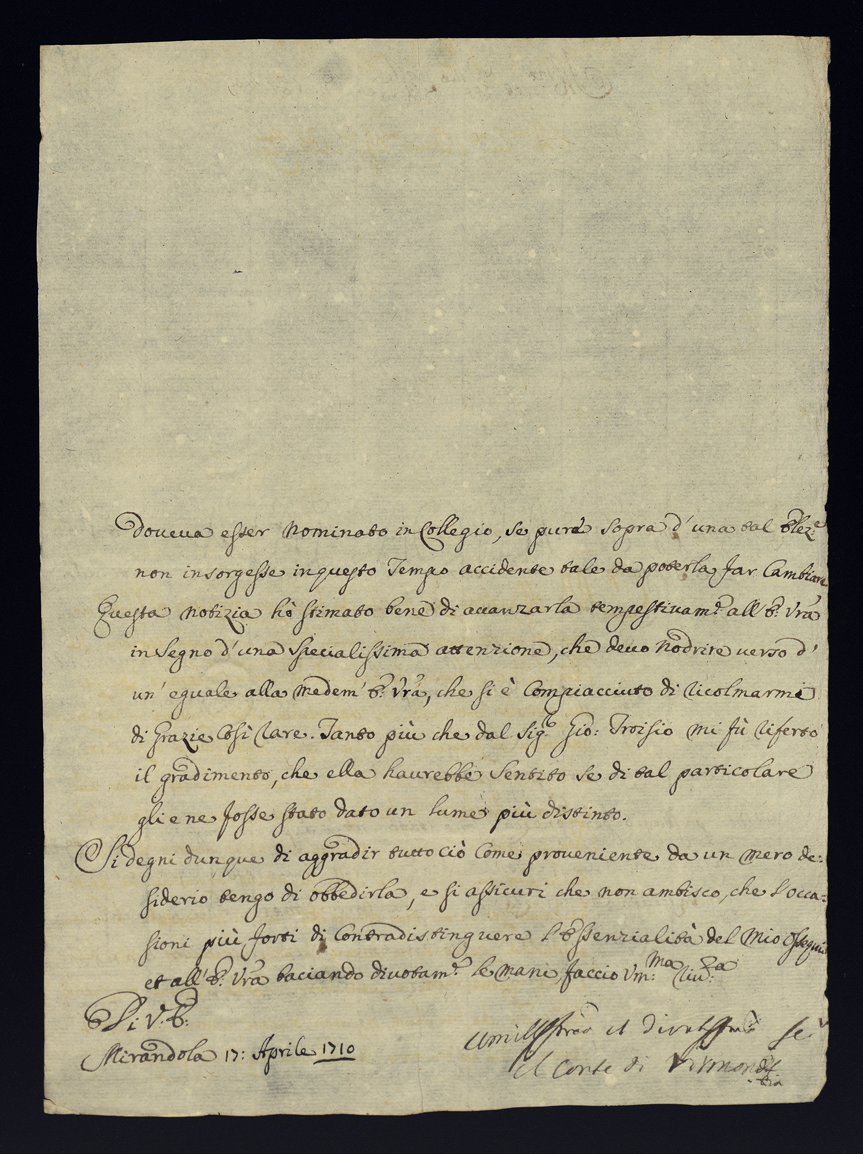 doueua esser nominato in Collegio, se pure sopra d'una tal Elez:e
non insorgesse in questo Tempo accidente tale da poterla far Cambiare
Questa notizia hò stimato bene di auanzarla tempestiuam:e all'E: Vrã
in segno d'una specialissima attenzione, che deuo nodrire uerso d'
un' eguale alla medem' E: Vrã, che si è Compiacciuto di ricolmarmi
di Grazie Così rare. Tanto più che dal Sig:r Gio: Troisio mi fù riferto
il gradimento, che ella haurebbe Sentito se di tal particolare
gliene fosse stato dato un lume più distinto.
Si degni dunque di aggradir tutto ciò Come proueniente da un mero de:
siderio tengo di obbedirla, e si assicuri che non ambisco, che l'occa:
sioni più forti di Contradistinguere l'Essenzialità del Mio Ossequio
et all'E: Vrã baciando diuotam:e le mani faccio Vm:ma Riu:za
Di V: E:
Mirandola 17: Aprile 1710
il Conte di